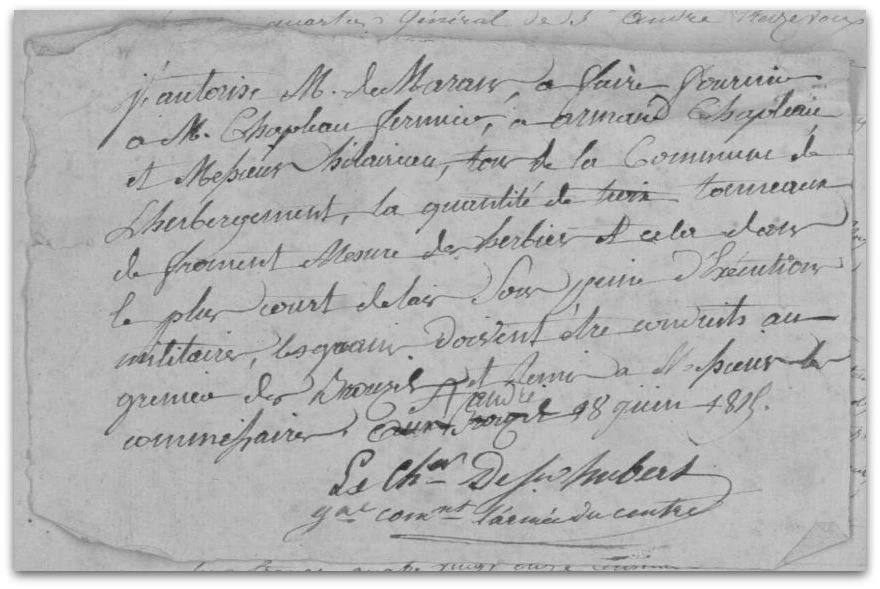 quartier Général de St andré treize vous
j'autorise M. de Marans, a faire fournir
a M. Chapleau fermier, a armand Chapleau
et Messieurs hilaireau, tous de la Commune de
L'herbergement, la quantité de trois tonneaux
de froment Mesure des herbiers et cela dans
le plus court delais Sous peine d'Exécution
militaire, les grains doivent être conduits au
grenier des Brouzils et remis a Messieurs les
commissaires. St andré 18 juin 1815.
Le Cher De St hubert
gnal comnt l'armée du centre